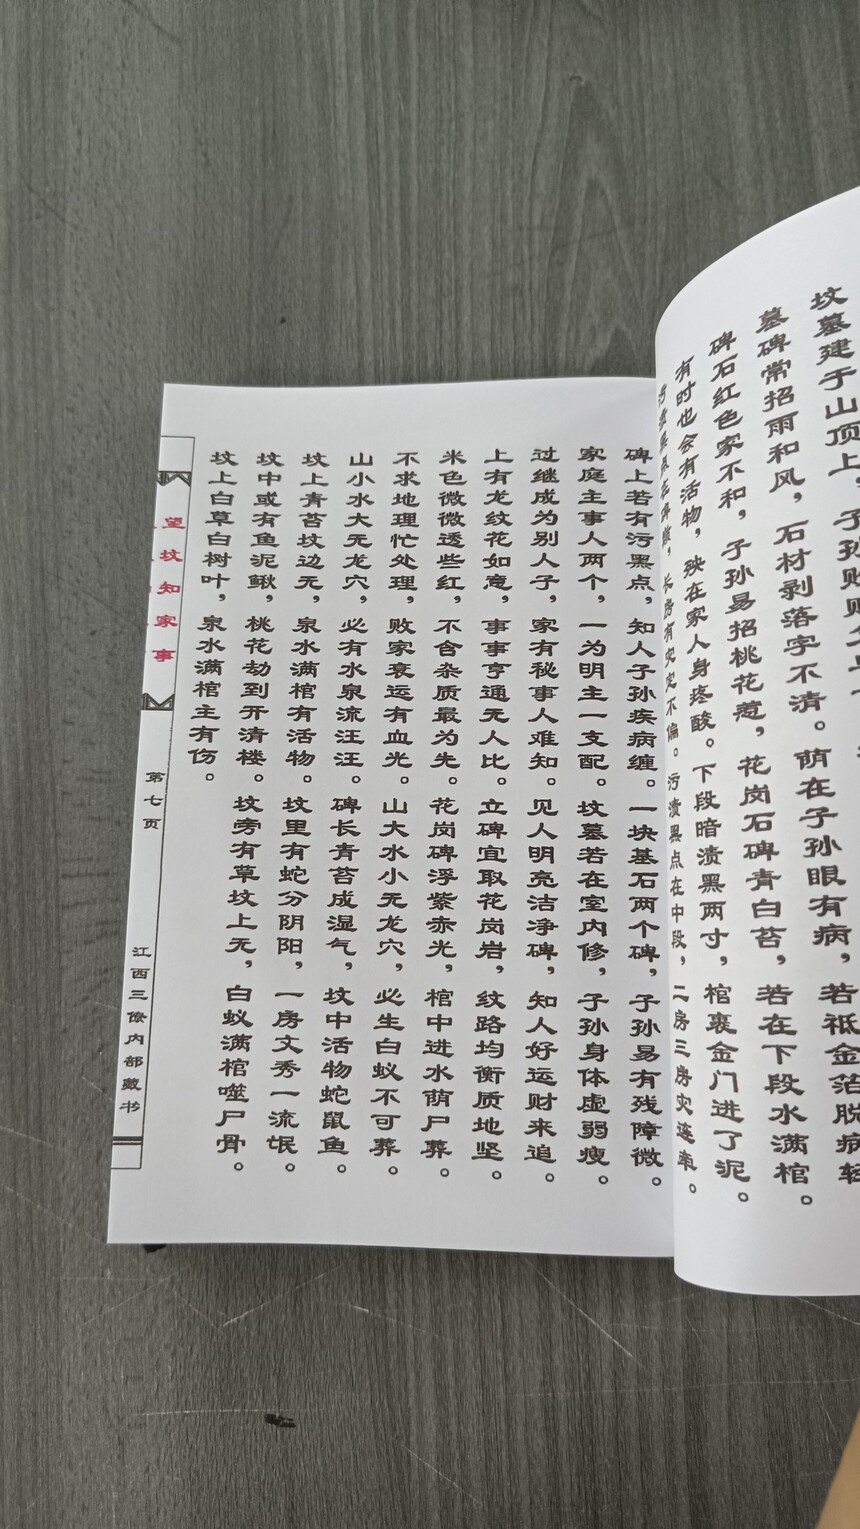 坟墓建于山顶上，子孙败
墓碑常招雨和风，石材剥落字不清。荫在子孙眼有病，若祗金箔脱病轻
碑石红色家不和，子孙易招桃花惹，花岗石碑青白苔，若在下段水满棺。
有时也会有活物，殃在家人身疼酸。下段暗渍黑两寸，棺裹金门进了泥。
污渍黑点在碑顶，长房有灾灾不偏。污渍黑点在中段，二房三房灾连牵。
碑上若有污黑点，知人子孙疾病缠。一块墓石两个碑，子孙易有残障微。
家庭主事人两个，一为明主一支配。坟墓若在室内修，子孙身体虚弱瘦。
过继成为别人子，家有秘事人难知。见人明亮洁净碑，知人好运财来追。
上有龙纹花如意，事事亨通无人比。立碑宜取花岗岩，纹路均衡质地坚。
米色微微透些红，不含杂质最为先。花岗碑浮紫赤光，棺中进水荫尸葬。
不求地理忙处理，败家衰运有血光。山大水小无龙穴，必生白蚁不可葬。
山小水大无龙穴，必有水泉流汪汪。碑长青苔成湿气，坟中活物蛇鼠鱼。
坟上青苔坟边无，泉水满棺有活物。坟里有蛇分阴阳，一房文秀一流氓。
坟中或有鱼泥鳅，桃花劫到开清楼。坟旁有草坟上无，白蚁满棺噬尸骨。
坟上白草白树叶，泉水满棺主有伤。
望坟知家事
第七页
江西三僚内部藏书